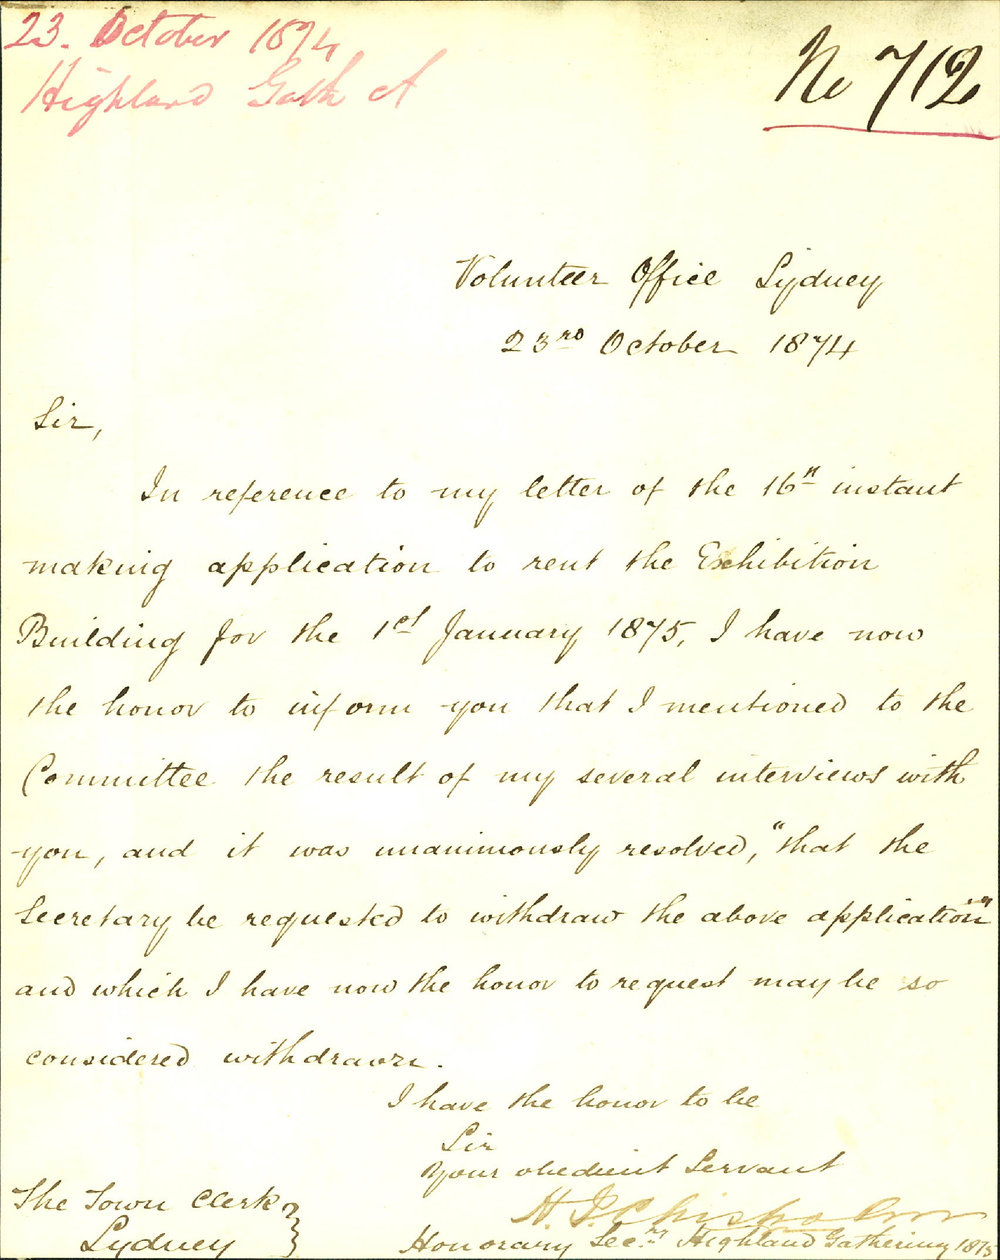 23. October 1874
Highland Gath A
No 712
Volunteer Office Sydney
23rd October 1874
Sir,
In reference to my letter of the 16th instant
making application to rent the Exhibition
Building for the 1st January 1875, I have now
the honor to inform you that I mentioned to the
Committee the result of my several interviews with
you, and it was unanimously resolved, "that the
Secretary be requested to withdraw the above application"
and which I have now the honor to request may be so
considered withdrawn.
I have the honor to be
Sir
Your obedient Servant
H. P. Chisholm
Honorary Secry Highland Gathering 1875
The Town Clerk
Sydney